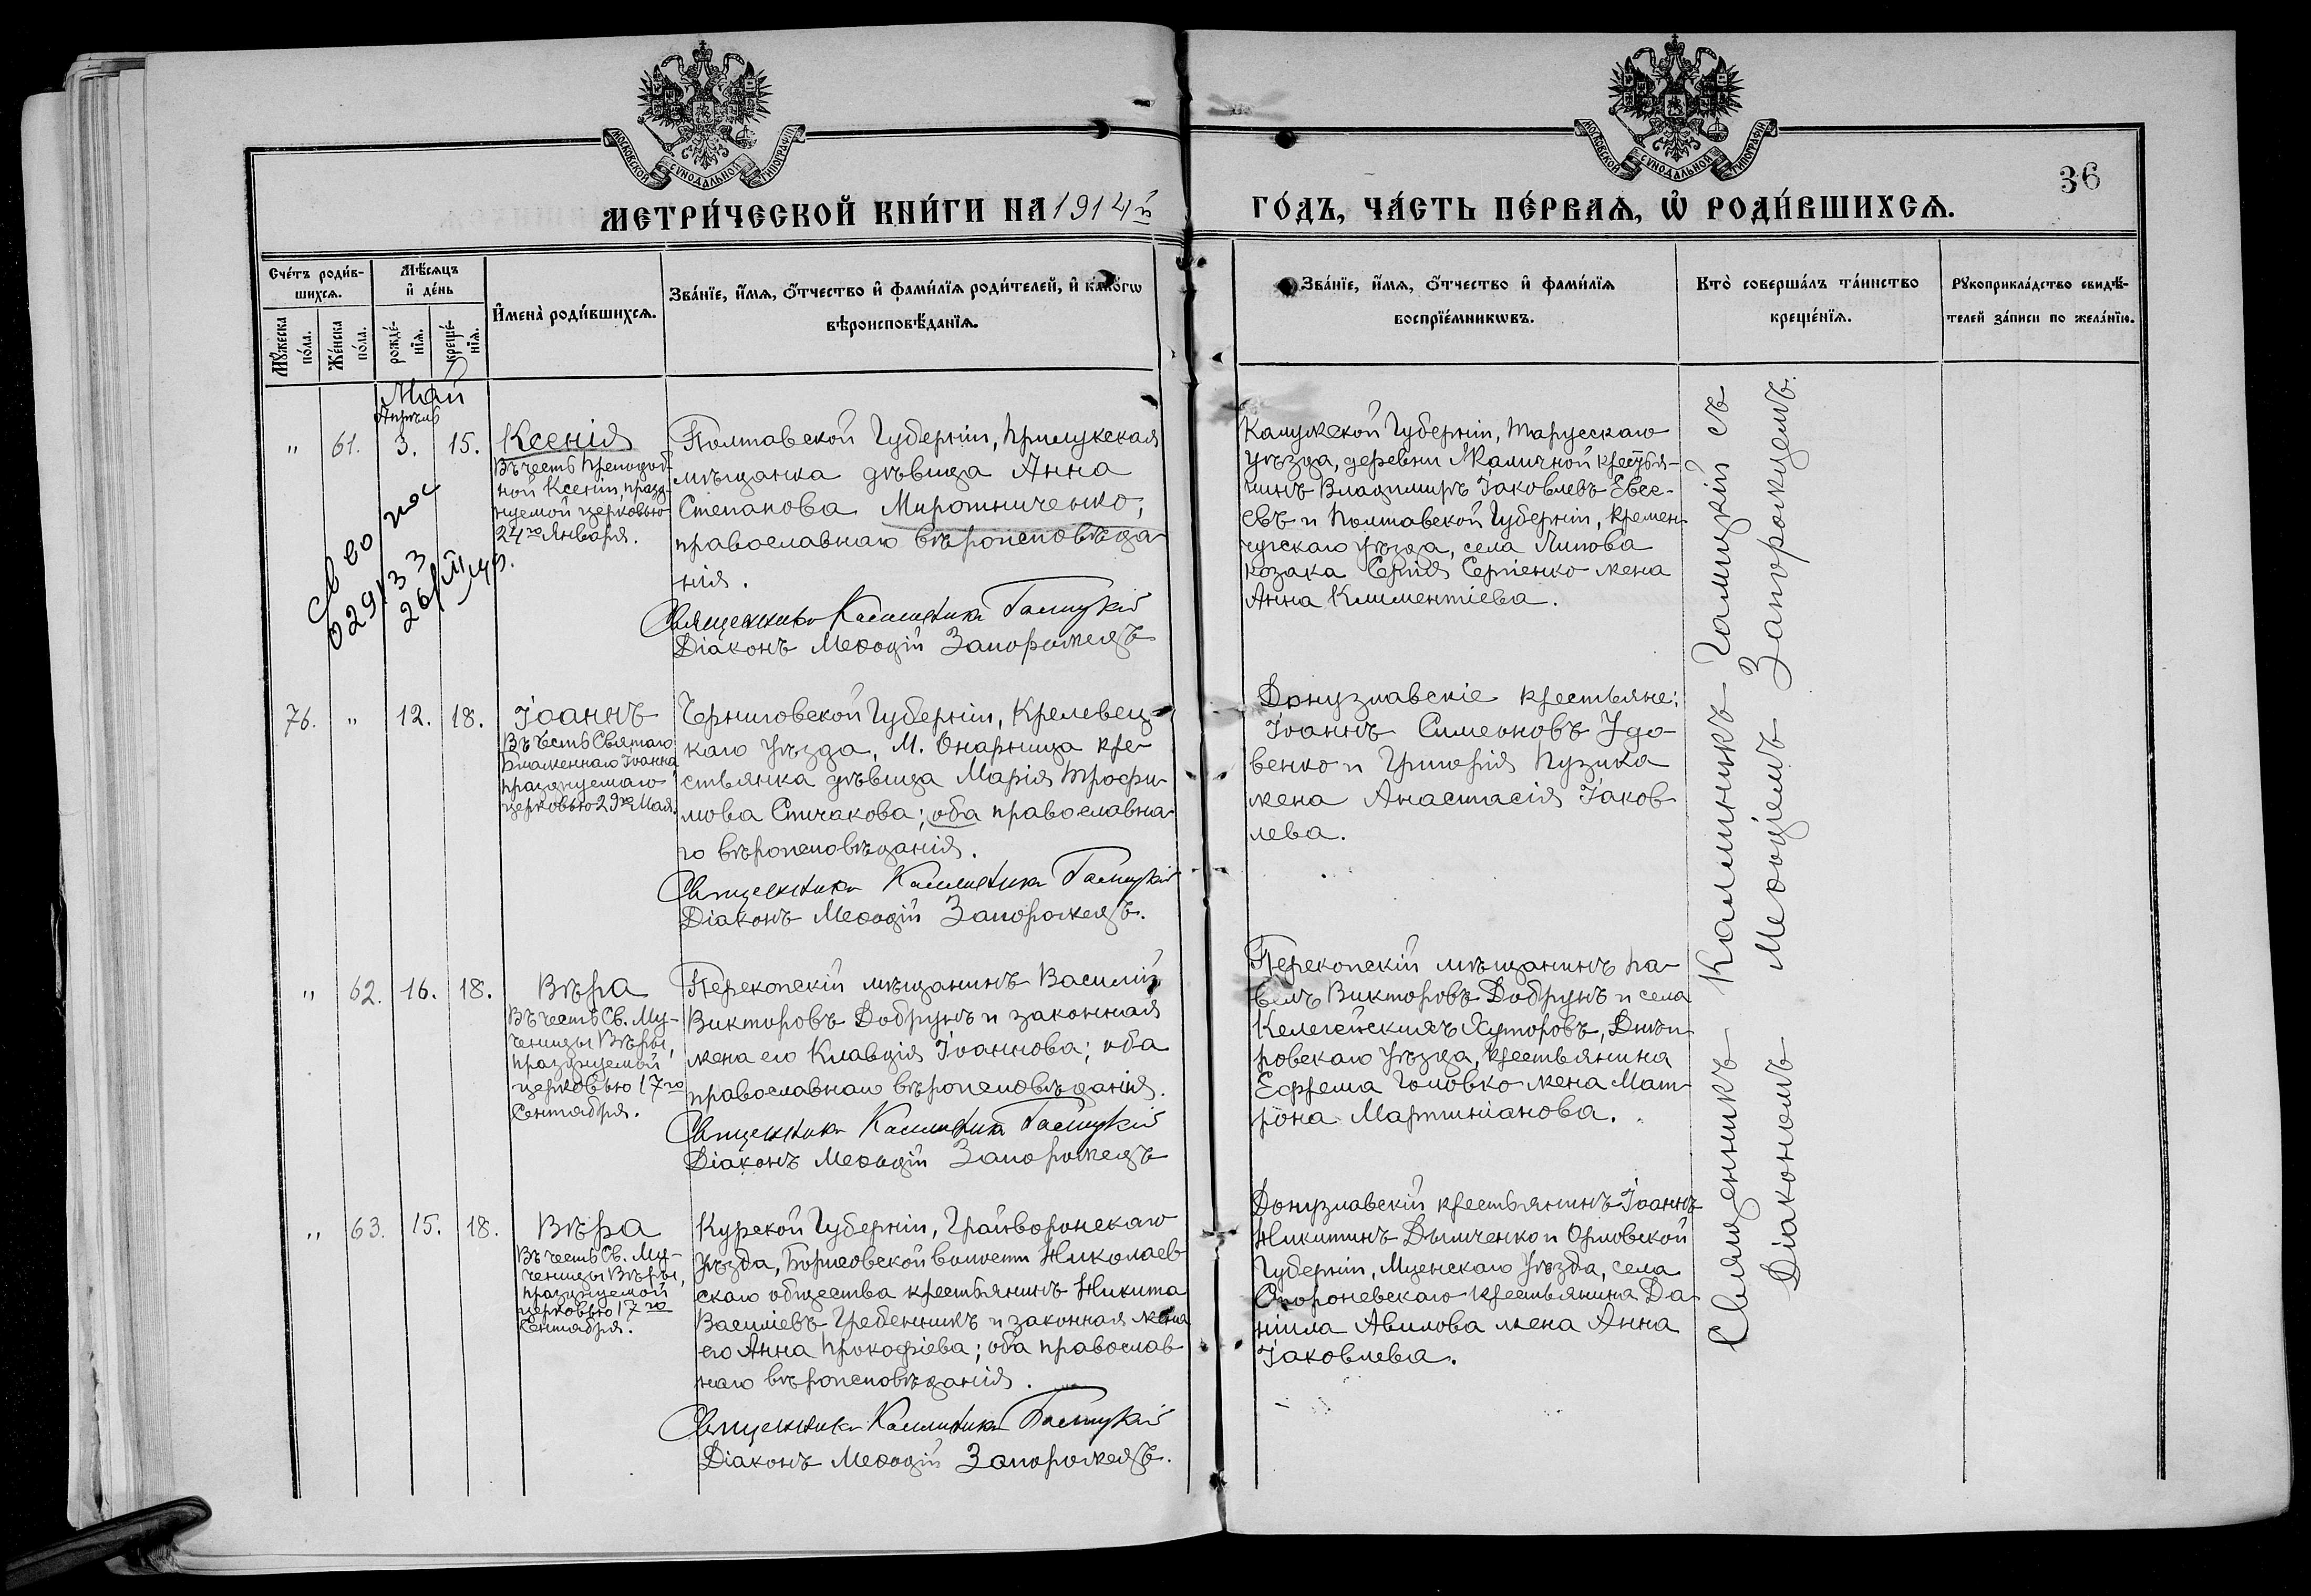 МОСКОВСКОЙ СУНОДАЛЬНОЙ ТИПОГРАФІИ
МОСКОВСКОЙ СУНОДАЛЬНОЙ ТИПОГРАФІИ
36
МЕТРИ́ЧЕСКОЙ КНИ́ГИ НА 1914й
ГО́ДЪ, ЧА́СТЬ ПЕ́РВАѦ, Ѡ҆ РОДИ́ВШИХСѦ.
Сче́тъ роди́в-
шихсѧ.
Мꙋ́жеска
по́ла.
Же́нска
по́ла.
Мѣ́сѧцъ
и҆ де́нь
рожде́-
нїѧ.
креще́-
нїѧ.
И҆мена̀ роди́вшихсѧ.
Зва́нїе, и҆́мѧ, ѻ҆́тчество и҆ фами́лїѧ роди́телей, и҆ како́гѡ
вѣроисповѣ́данїѧ.
Зва́нїе, и҆́мѧ, ѻ҆́тчество и҆ фами́лїѧ
воспрїе́мникѡвъ.
Кто̀ соверша́лъ та́инство
креще́нїѧ.
Рꙋкоприкла́дство свидѣ́-
телей за́писи по жела́нїю.
Май
Апрѣль
" 61. 3. 15.
Ксенія
Въ честь преподоб-
ной Ксеніи, празд-
нуемой церковью
24го Января.
02913 3
26/III
Полтавской Губерніи, Прилукская
мѣщанка дѣвица Анна
Степанова Мирошниченко,
православнаго вѣроисповѣда-
нія.
Священникъ Каллиникъ Галицкій
Діаконъ Меѳодій Запорожецъ
Калужской Губерніи, Тарусскаго
уѣзда, деревни крестья-
нинъ Владимиръ Іаковлевъ Евсе-
евъ и Полтавской Губерніи, Кремен-
чугскаго уѣзда, села Липова
козака Сергія Сергіенко жена
Анна Климентіева.
76. " 12. 18.
Іоаннъ
Въ честь Святаго
Блаженнаго Іоанна,
празднуемаго
церковью 29го Мая.
Черниговской Губерніи, Кролевец-
каго уѣзда, М. кре-
стьянка дѣвица Марія Трофи-
мова Спичакова; оба православна-
го вѣроисповѣданія.
Священникъ Каллиникъ Галицкій
Діаконъ Меѳодій Запорожецъ.
Донузлавскіе крестьяне:
Іоаннъ Симеоновъ Удо-
венко и Григорія Пузика
жена Анастасія Іаков-
лева.
" 62. 16. 18.
Вѣра
Въ честь Св. Му-
ченицы Вѣры,
празднуемой
церковью 17го
Сентября.
Перекопскій мѣщанинъ Василій
Викторовъ Добрунъ и законная
жена его Клавдія Іоаннова; оба
православнаго вѣроисповѣданія.
Священникъ Каллиникъ Галицкій
Діаконъ Меѳодій Запорожецъ
Перекопскій мѣщанинъ Па-
велъ Викторовъ Добрунъ и села
Келегейскихъ Хуторовъ, Днѣп-
ровскаго уѣзда, крестьянина
Ефрема Головко жена Мат-
рона Мартиніанова.
" 63. 15. 18.
Вѣра
Въ честь Св. Му-
ченицы Вѣры,
празднуемой
церковью 17го
Сентября.
Курской Губерніи, Грайворонскаго
уѣзда, Борисовской волости Николаев-
скаго общества крестьянинъ Никита
Василіевъ Гребенникъ и законная жена
его Анна Прокофіева; оба православ-
наго вѣроисповѣданія.
Священникъ Каллиникъ Галицкій
Діаконъ Меѳодій Запорожецъ.
Донузлавскій крестьянинъ Іоаннъ
Никитинъ Дымченко и Орловской
Губерніи, Мценскаго уѣзда, села
крестьянина Да-
ніила Авилова жена Анна
Іаковлева.
Священникъ Каллиникъ Галицкій съ
Діакономъ Меѳодіемъ Запорожцемъ.